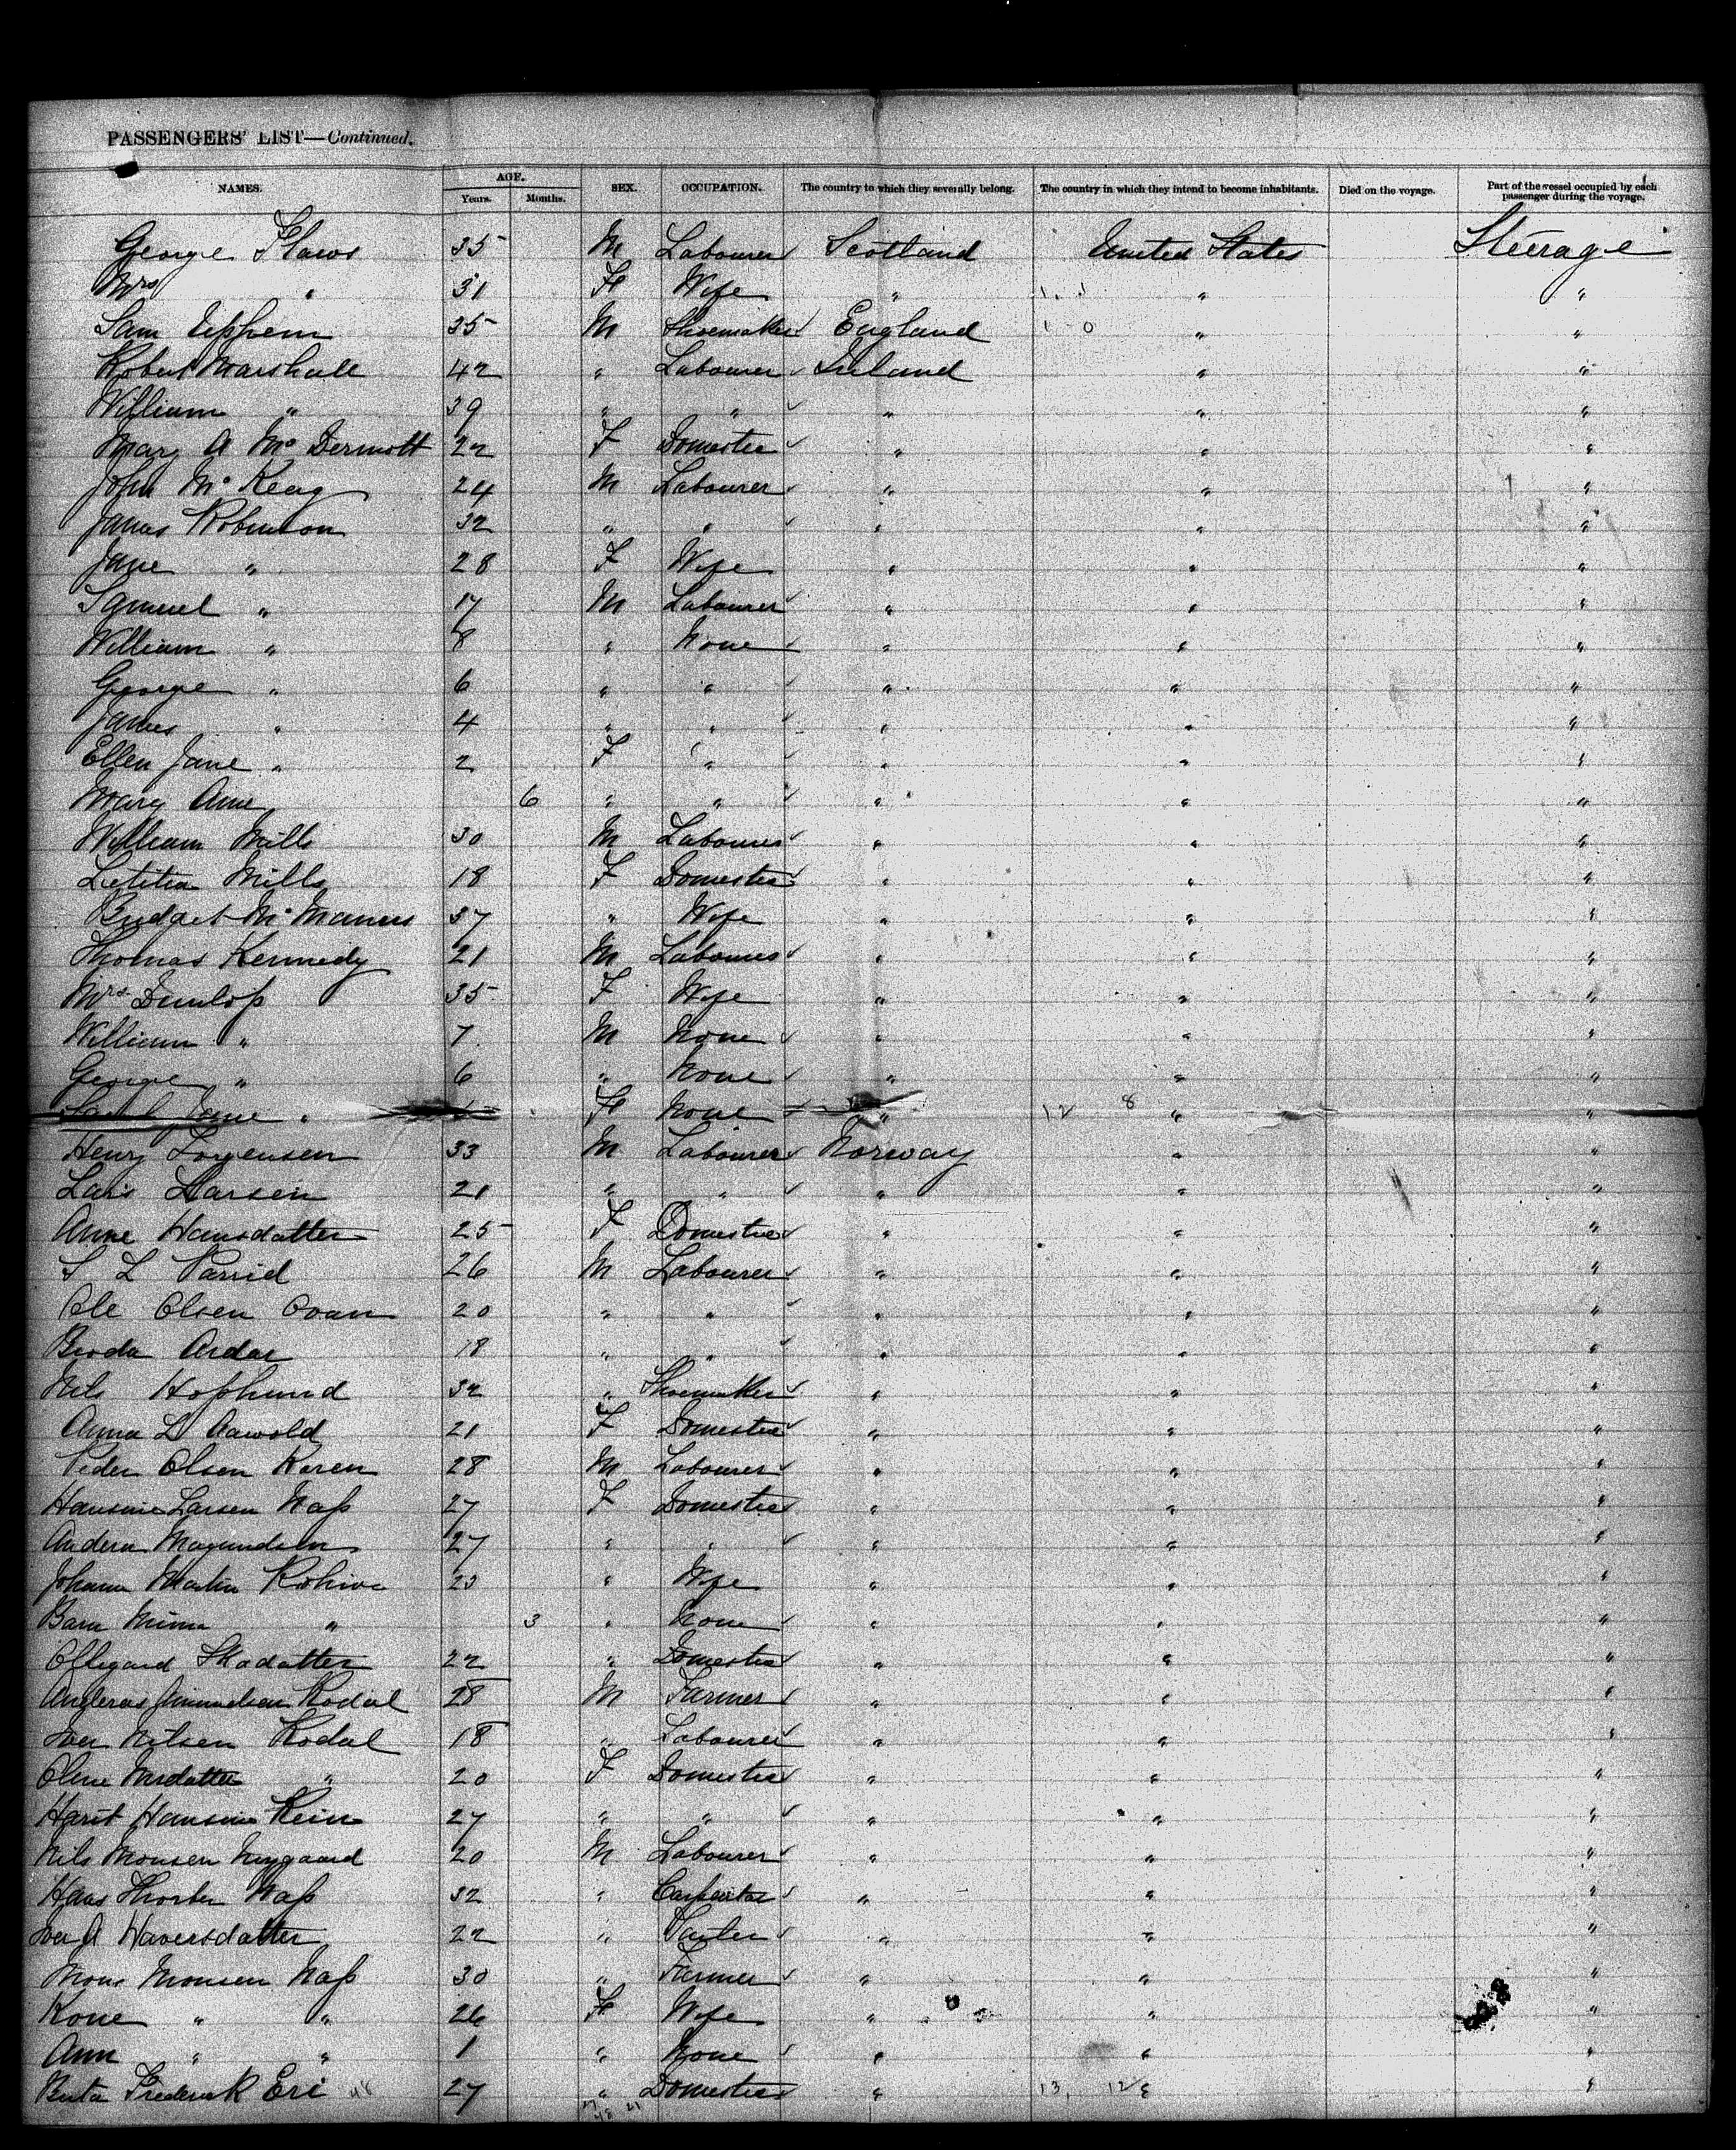 PASSENGERS' LIST—Continued.
NAMES. AGE. Years. Months. SEX. OCCUPATION. The country to which they severally belong. The country in which they intend to become inhabitants. Died on the voyage. Part of the vessel occupied by each passenger during the voyage.
George Flaws 35 M Labourer Scotland United States Steerage
Mrs " 31 F Wife " " "
Sam 35 M Shoemaker England " "
Robert Marshall 42 " Labourer Ireland " "
William " 39 " " " " "
Mary A McDermott 22 F Domestic " " "
John McKeag 24 M Labourer " " "
James Robinson 32 " " " " "
Jane " 28 F Wife " " "
Samuel " 17 M Labourer " " "
William " 8 " None " " "
George " 6 " " " " "
James " 4 " " " " "
Ellen Jane " 2 F " " " "
Mary Ann 6 " " " " "
William Mills 30 M Labourer " " "
Letitia Mills 18 F Domestic " " "
Bridget McManus 37 " Wife " " "
Thomas Kennedy 21 M Labourer " " "
Mrs Dunlop 35 F Wife " " "
William " 7 M None " " "
George " 6 " None " " "
Jane " F None " 12 8 " "
Henry Lorgensen 33 M Labourer Norway " "
Lars Larsen 21 " " " " "
Anne Hansdatter 25 F Domestic " " "
S L 26 M Labourer " " "
Ole Olsen 20 " " " " "
Ardar 18 " " " " "
Nils Hophund 32 " Shoemaker " " "
Anna L Aawold 21 F Domestic " " "
Peder Olsen Koren 28 M Labourer " " "
Hansine Larsen Nass 27 F Domestic " " "
Magnudsen 27 " " " " "
Johanna Martin 23 " Wife " " "
Barn " 3 " None " " "
22 " Domestic " " "
Rodal 28 M Farmer " " "
Iver Nilsen Rodal 18 " Labourer " " "
Oline " 20 F Domestic " " "
Hansine 27 " " " " "
Nils Monsen Nygaard 20 M Labourer " " "
Hans Nass 32 " Carpenter " " "
Iver A Haversdatter 22 " " " "
Mons Monsen Nass 30 " Farmer " " "
Kone " " 26 F Wife " " "
Ann " " 1 " None " " "
Frederick Eri 48 27 " Domestic " 13 12 " "